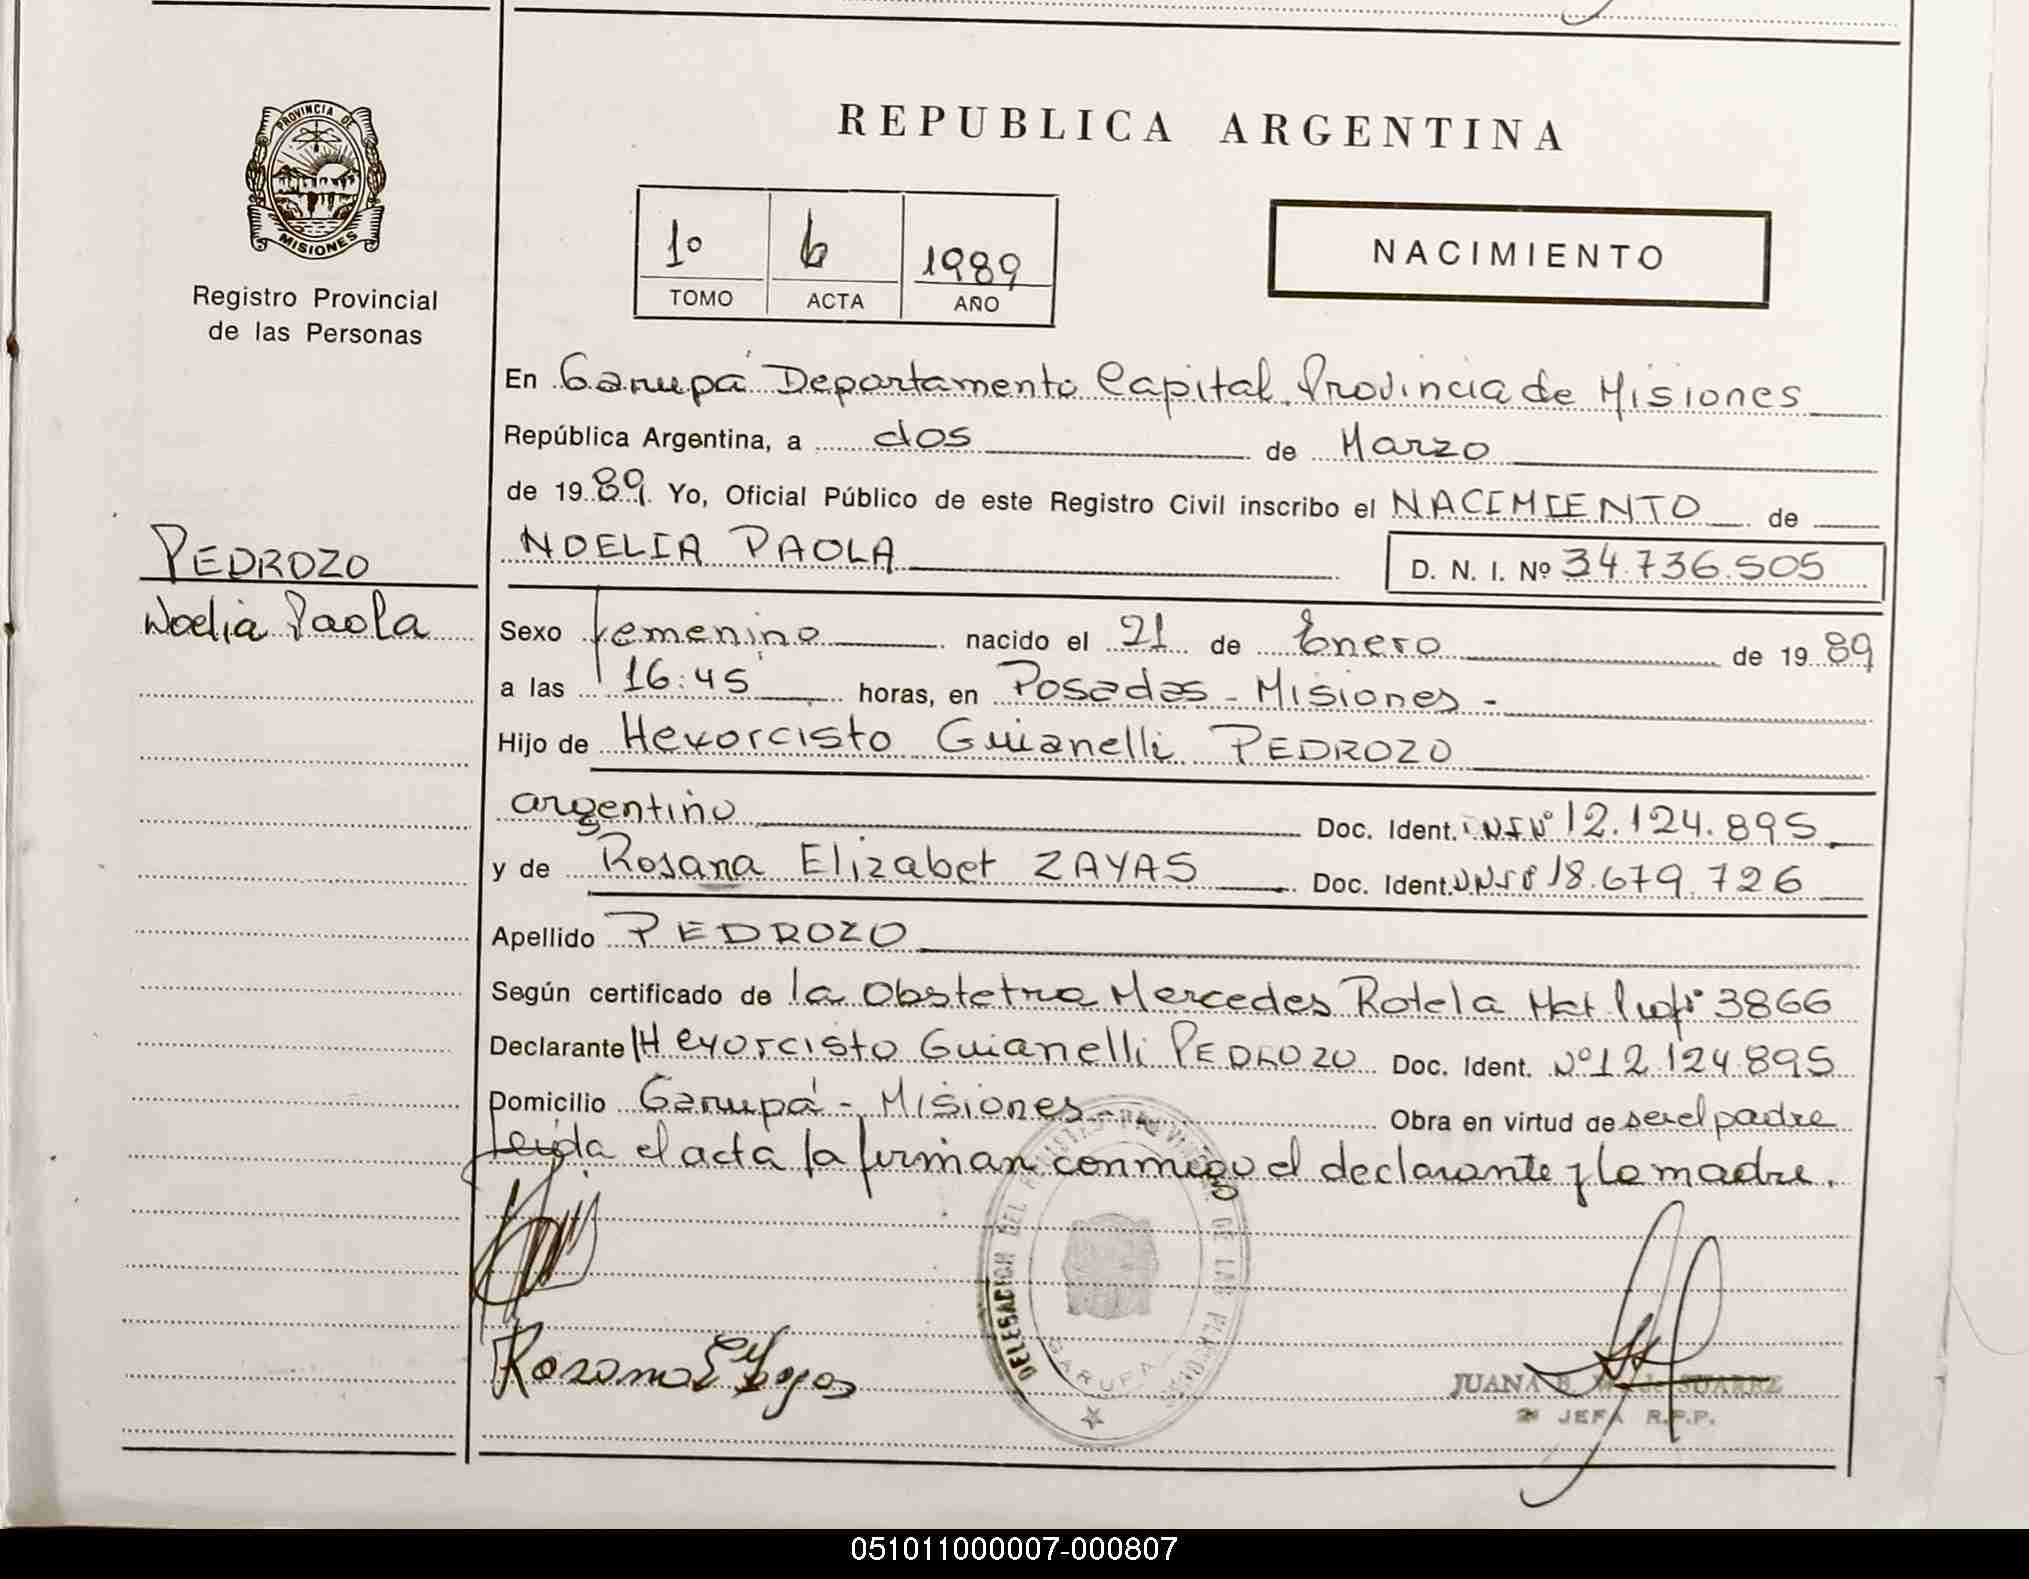 PROVINCIA DE
MISIONES
Registro Provincial
de las Personas
PEDROZO
Noelia Paola
REPUBLICA ARGENTINA
1º 6 1989
TOMO ACTA AÑO
NACIMIENTO
En Garupá Departamento Capital Provincia de Misiones
República Argentina, a dos de Marzo
de 1989. Yo, Oficial Público de este Registro Civil inscribo el NACIMIENTO de
NOELIA PAOLA D. N. I. Nº 34.736.505
Sexo femenino nacido el 21 de Enero de 1989
a las 16:45 horas, en Posadas - Misiones -
Hijo de Hexorcisto Guianelli PEDROZO
argentino Doc. Ident. DNI Nº 12.124.895
y de Rosana Elizabet ZAYAS Doc. Ident. DNI Nº 18.679.726
Apellido PEDROZO
Según certificado de la Obstetra Mercedes Rotela Mat Prof: 3866
Declarante Hexorcisto Guianelli PEDROZO Doc. Ident. Nº 12.124.895
Domicilio Garupá - Misiones - Obra en virtud de ser el padre
Leida el acta la firman conmigo el declarante y la madre.
DELEGACION DEL REGISTRO PROVINCIAL DE LAS PERSONAS
GARUPA
Rosana E Zayas
JUANA B. de SUAREZ
JEFA R.P.P.
051011000007-000807